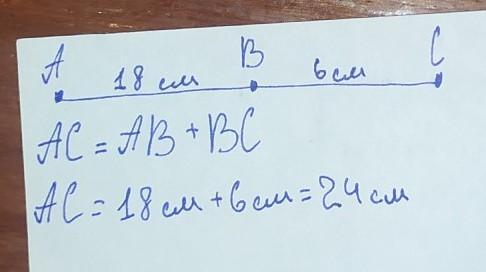 A B C
18 см 6 см
AC = AB + BC
AC = 18 см + 6 см = 24 см